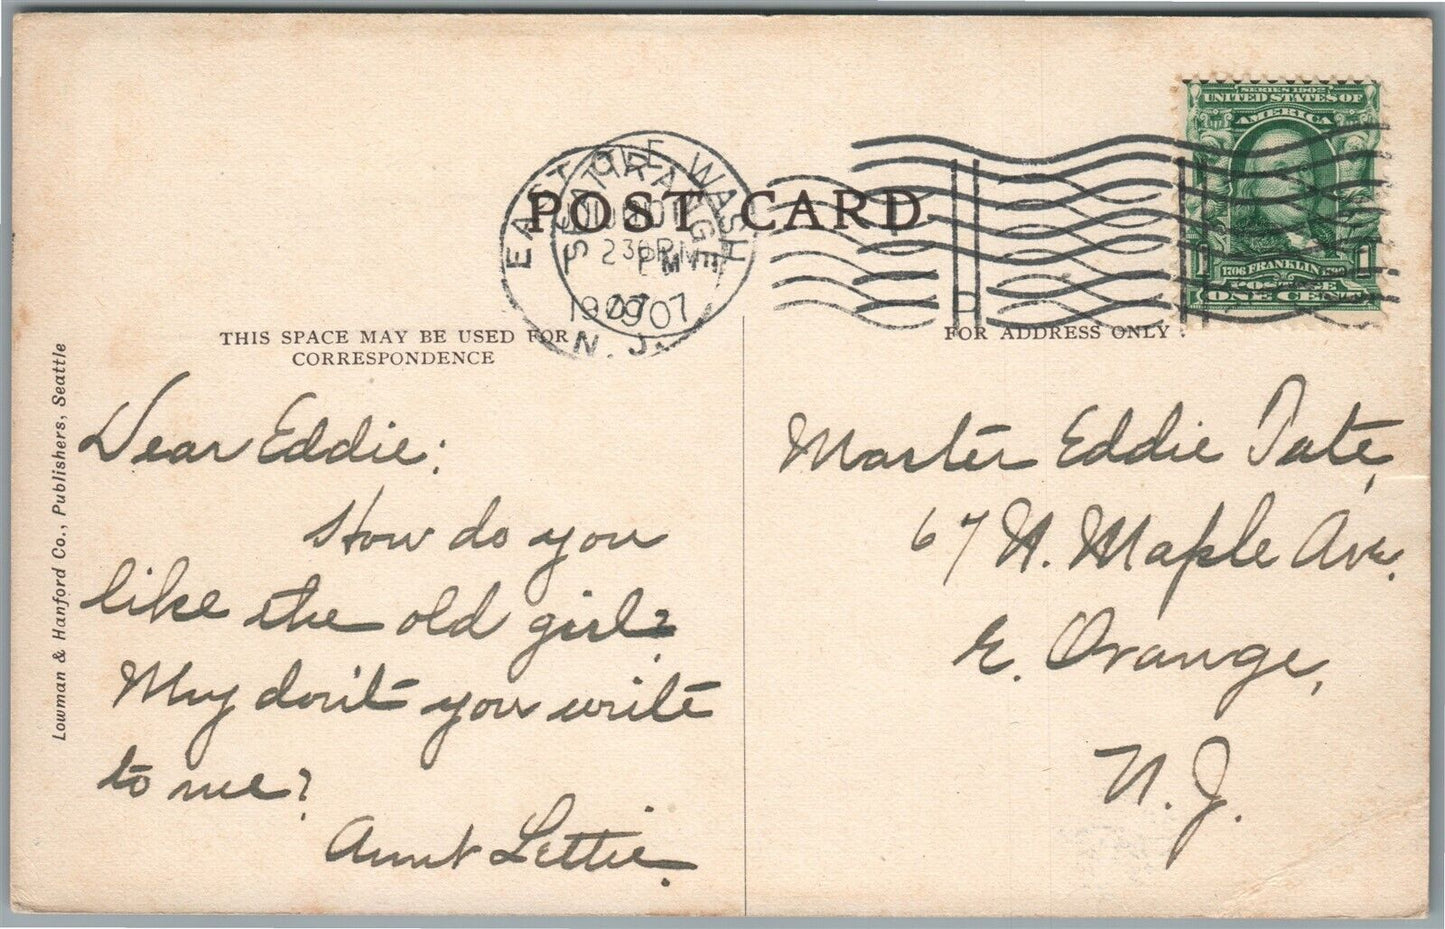 SERIES 1902
UNITED STATES OF
AMERICA
1706 FRANKLIN 1790
1 1
POSTAGE
ONE CENT
SEATTLE WASH
EAST ORANGE
PM
1907
1907
N. J.
POST CARD
THIS SPACE MAY BE USED FOR
CORRESPONDENCE
FOR ADDRESS ONLY
Lowman & Hanford Co., Publishers, Seattle
Dear Eddie:
How do you
like the old girl?
Why don't you write
to me?
Aunt Lettie.
Master Eddie Tate,
67 N. Maple Ave.
E. Orange,
N. J.